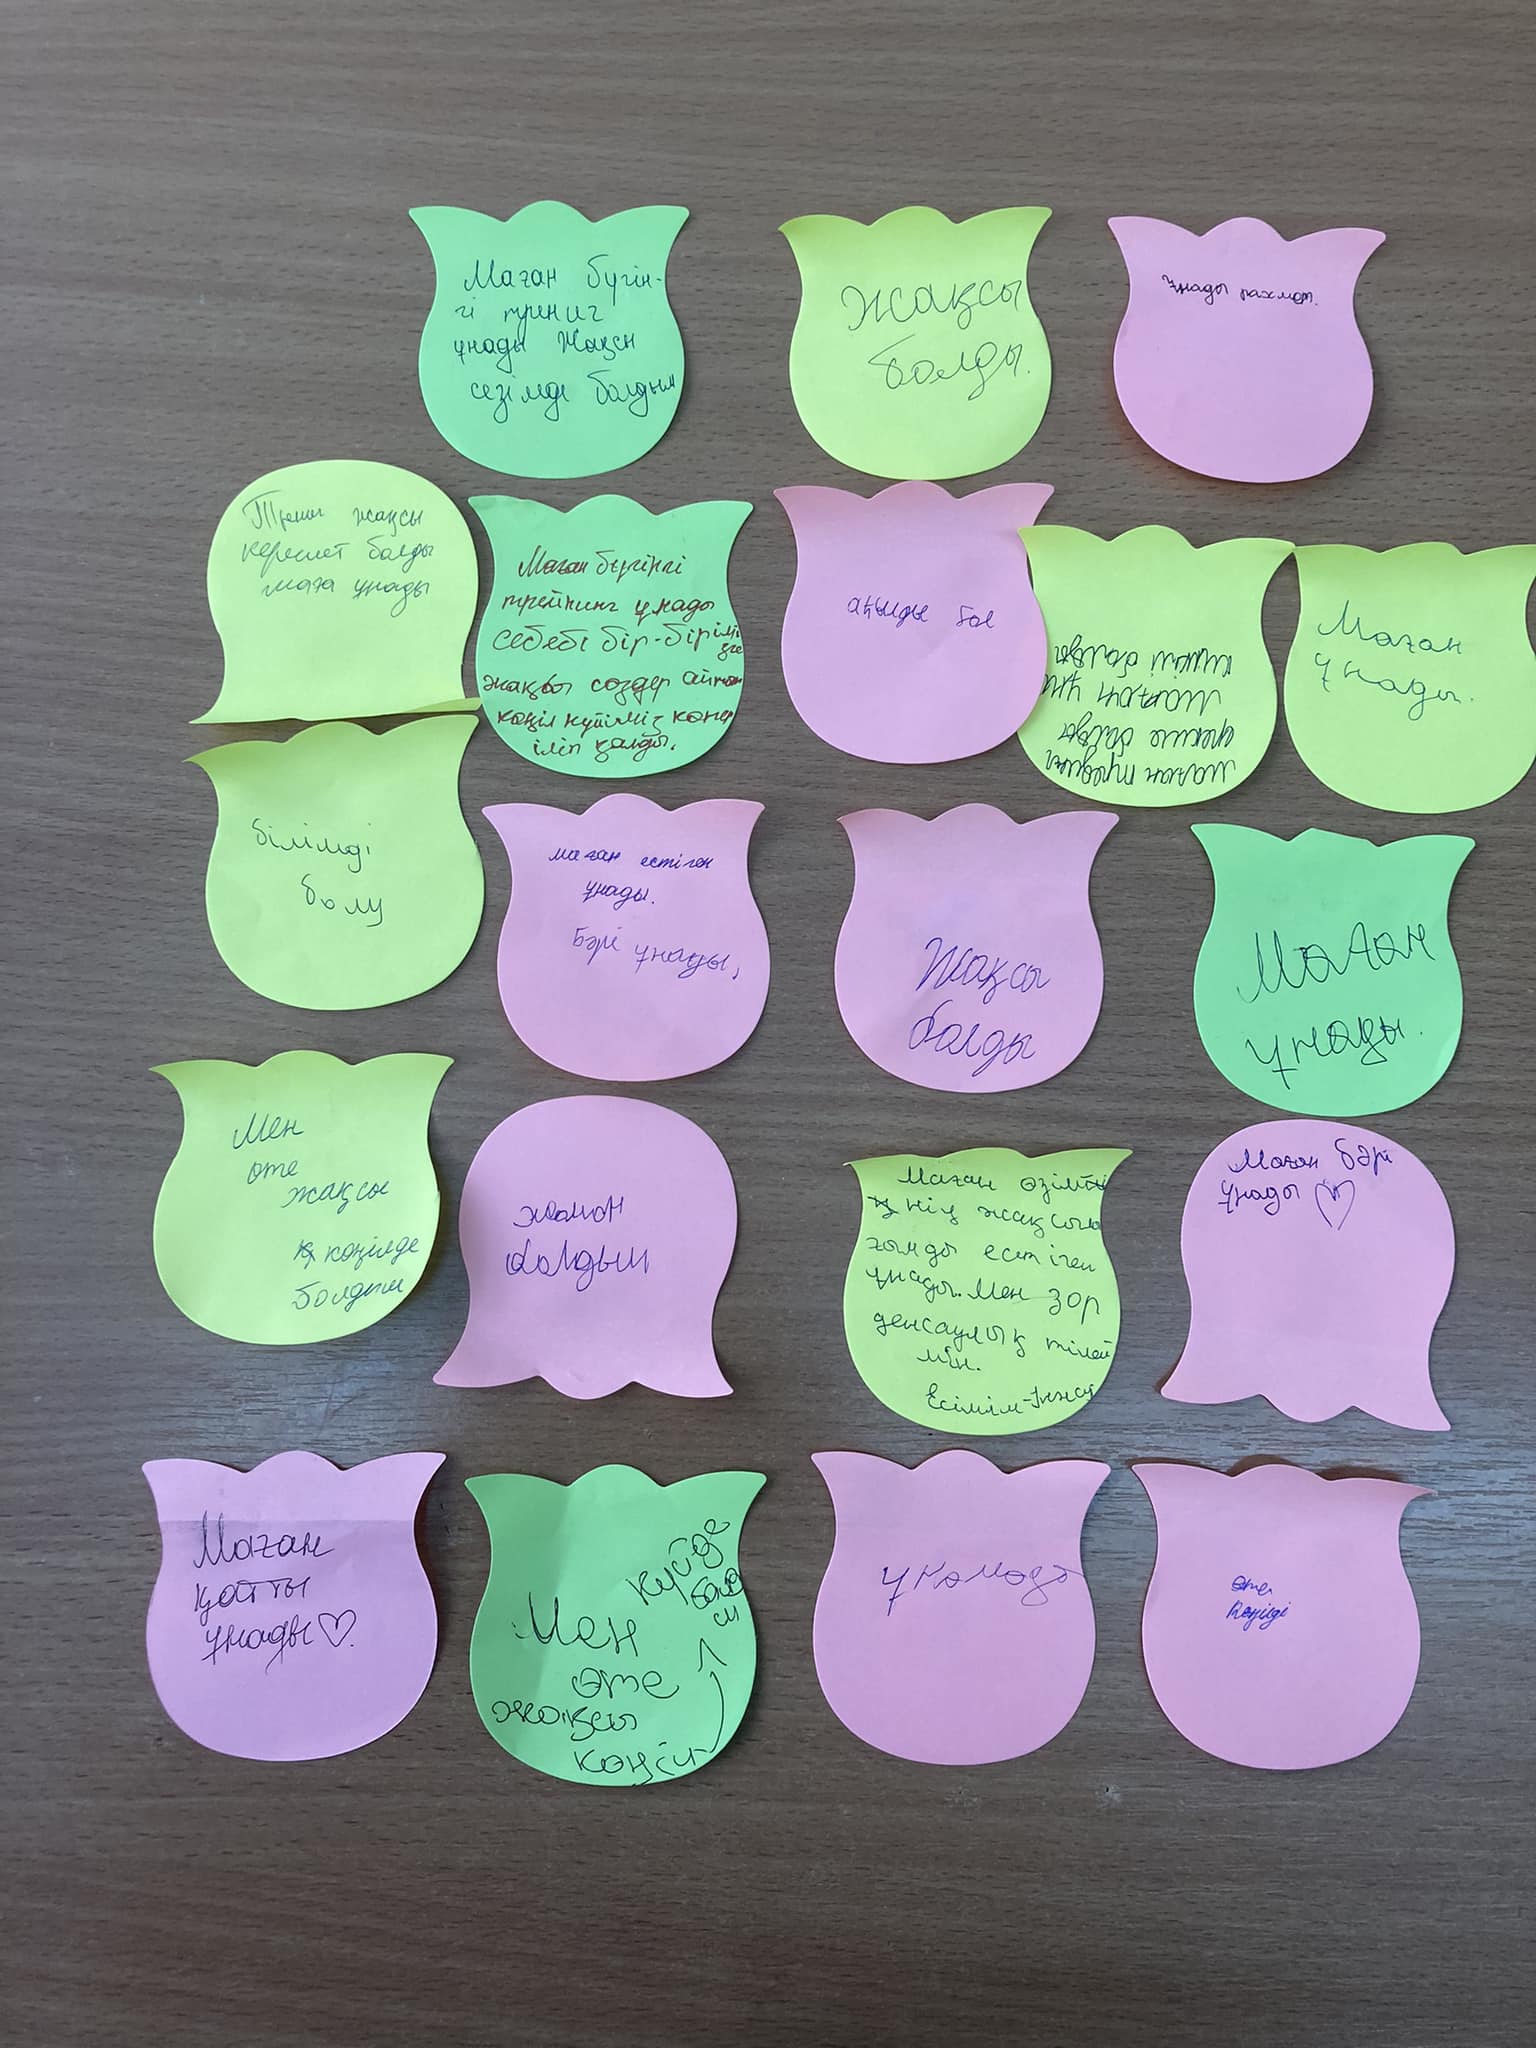 Маған бүгін-
гі трениг
ұнады Жақсы
сезімде болдым
Жақсы
болды.
ұнады рахмат.
жақсы
керемет болды
маға ұнады
Маған бүгінгі
трейнинг ұнады
себебі бір-бірімі
зге
жақсы сөздер айтып
көңіл күйіміз көтер
іліп қалды.
ақылды бол
маған
болды
маған
болды
Маған
ұнады.
білімді
болу
маған естіген
ұнады.
Бәрі ұнады,
Жақсы
болды
Маған
ұнады.
Мен
өте
жақсы
көңілде
болдым
жаман
болдым
Маған өзімті
нің жақсылы
ғымды естіген
ұнады. Мен зор
денсаулық тілей
мін.
Есімім-Інжу
Маған бәрі
ұнады ♡
Маған
қатты
ұнады ♡.
Мен
өте
жақсы
көңіл
күйде
болд
ым
ұнамады
өте
көңілді